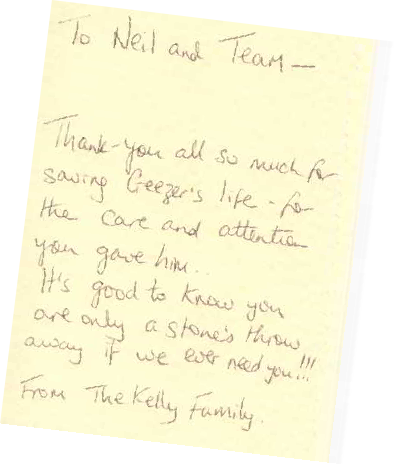 To Neil and Team—
Thank-you all so much for
saving Geezer's life - for
the care and attention
you gave him..
It's good to know you
are only a stone's throw
away if we ever need you!!!
From The Kelly Family.